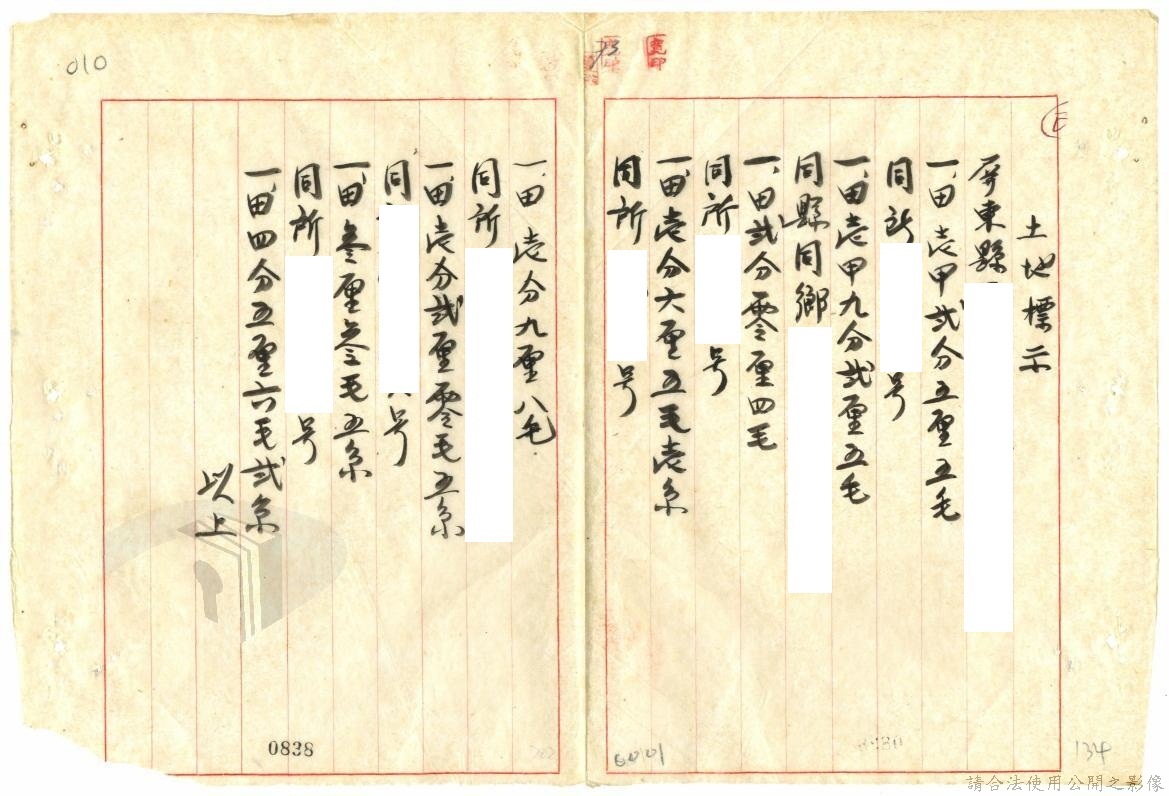 土地標示
屏東縣
一、田壱甲弍分五厘五毛
同所 号
一、田壱甲九分弍厘五毛
同縣同鄉
一、田弍分零厘四毛
同所 号
一、田壱分六厘五毛壱糸
同所 号
一、田壱分九厘八毛
同所
一、田壱分弍厘零毛五糸
同 号
一、田叁厘叁毛五糸
同所 号
一、田四分五厘六毛弍糸
以上
010
0838
6001
134
請合法使用公開之影像